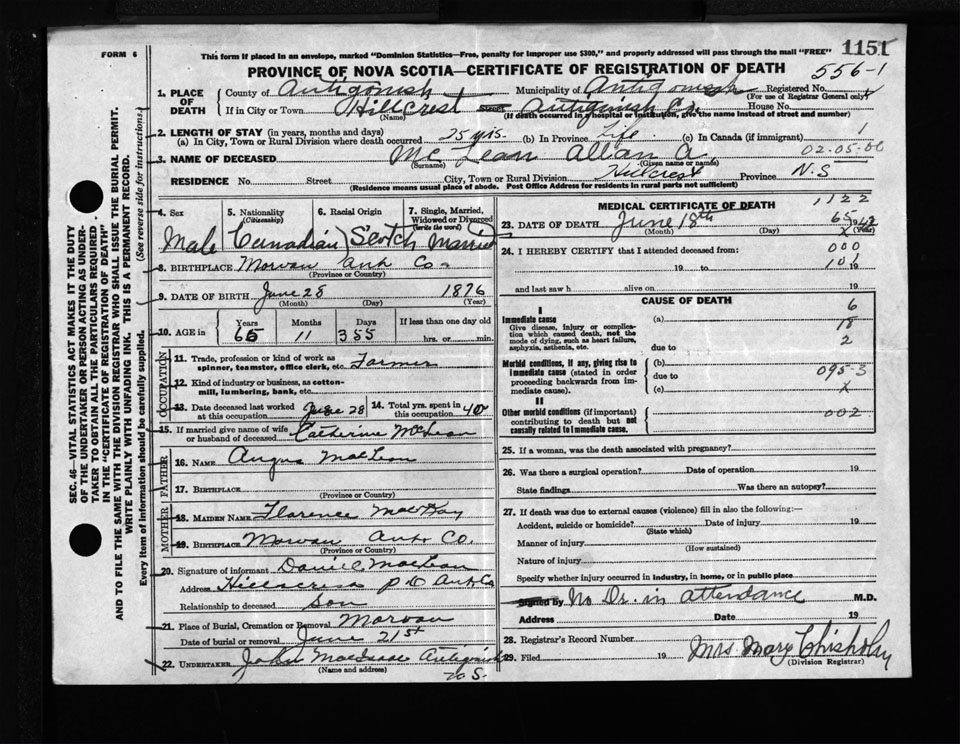 1151
FORM 6
This form if placed in an envelope, marked "Dominion Statistics—Free, penalty for improper use $300," and properly addressed will pass through the mail "FREE"
PROVINCE OF NOVA SCOTIA—CERTIFICATE OF REGISTRATION OF DEATH
556-1
1. PLACE OF DEATH
County of Antigonish Municipality of Antigonish Registered No.
(For use of Registrar General only)
If in City or Town Hillcrest Street Antigonish Co. House No.
(Name) (If death occurred in a hospital or institution, give the name instead of street and number)
2. LENGTH OF STAY (in years, months and days)
(a) In City, Town or Rural Division where death occurred 25 yrs. (b) In Province Life (c) In Canada (if immigrant) 1
3. NAME OF DECEASED Mc Lean Allan A. 02-05-00
(Surname) (Given name or names)
RESIDENCE No. Street City, Town or Rural Division Hillcrest Province N.S
(Residence means usual place of abode. Post Office Address for residents in rural parts not sufficient)
4. Sex 5. Nationality (Citizenship) 6. Racial Origin 7. Single, Married, Widowed or Divorced (Write the word)
Male Canadian Scotch Married
8. BIRTHPLACE Morvan Ant Co
(Province or Country)
9. DATE OF BIRTH June 28 1876
(Month) (Day) (Year)
10. AGE in Years Months Days If less than one day old
65 11 355 hrs. or min.
OCCUPATION
11. Trade, profession or kind of work as spinner, teamster, office clerk, etc. Farmer
12. Kind of industry or business, as cotton-mill, lumbering, bank, etc.
13. Date deceased last worked at this occupation June 28 14. Total yrs. spent in this occupation 40
15. If married give name of wife or husband of deceased Catherine McLean
FATHER
16. NAME Angus MacLean
17. BIRTHPLACE
(Province or Country)
MOTHER
18. MAIDEN NAME Florence MacKay
19. BIRTHPLACE Morvan Ant Co.
(Province or Country)
20. Signature of informant Daniel MacLean
Address Hillcrest P O Ant Co
Relationship to deceased Son
21. Place of Burial, Cremation or Removal Morvan
Date of burial or removal June 21st
22. UNDERTAKER John MacIsaac Antigonish
(Name and address)
N.S.
MEDICAL CERTIFICATE OF DEATH
1122
23. DATE OF DEATH June 18th 65 1942
(Month) (Day) (Year)
24. I HEREBY CERTIFY that I attended deceased from: 000
19 to 101 19
and last saw h alive on 19
CAUSE OF DEATH
I
Immediate cause
Give disease, injury or complication which caused death, not the mode of dying, such as heart failure, asphyxia, asthenia, etc.
(a) 6
18
due to 2
Morbid conditions, if any, giving rise to immediate cause (stated in order proceeding backwards from immediate cause).
(b)
due to 095-3
(c) X
II
Other morbid conditions (if important) contributing to death but not causally related to immediate cause.
002
25. If a woman, was the death associated with pregnancy?
26. Was there a surgical operation? Date of operation 19
State findings Was there an autopsy?
27. If death was due to external causes (violence) fill in also the following:—
Accident, suicide or homicide? Date of injury 19
(State which)
Manner of injury
(How sustained)
Nature of injury
Specify whether injury occurred in industry, in home, or in public place
Signed by No Dr. in attendance M.D.
Address Date 19
28. Registrar's Record Number
29. Filed 19 Mrs Mary Chisholm
(Division Registrar)
SEC. 46—VITAL STATISTICS ACT MAKES IT THE DUTY OF THE UNDERTAKER OR PERSON ACTING AS UNDERTAKER TO OBTAIN ALL THE PARTICULARS REQUIRED IN THE "CERTIFICATE OF REGISTRATION OF DEATH" AND TO FILE THE SAME WITH THE DIVISION REGISTRAR WHO SHALL ISSUE THE BURIAL PERMIT.
WRITE PLAINLY WITH UNFADING INK. THIS IS A PERMANENT RECORD.
Every item of information should be carefully supplied. (See reverse side for instructions)